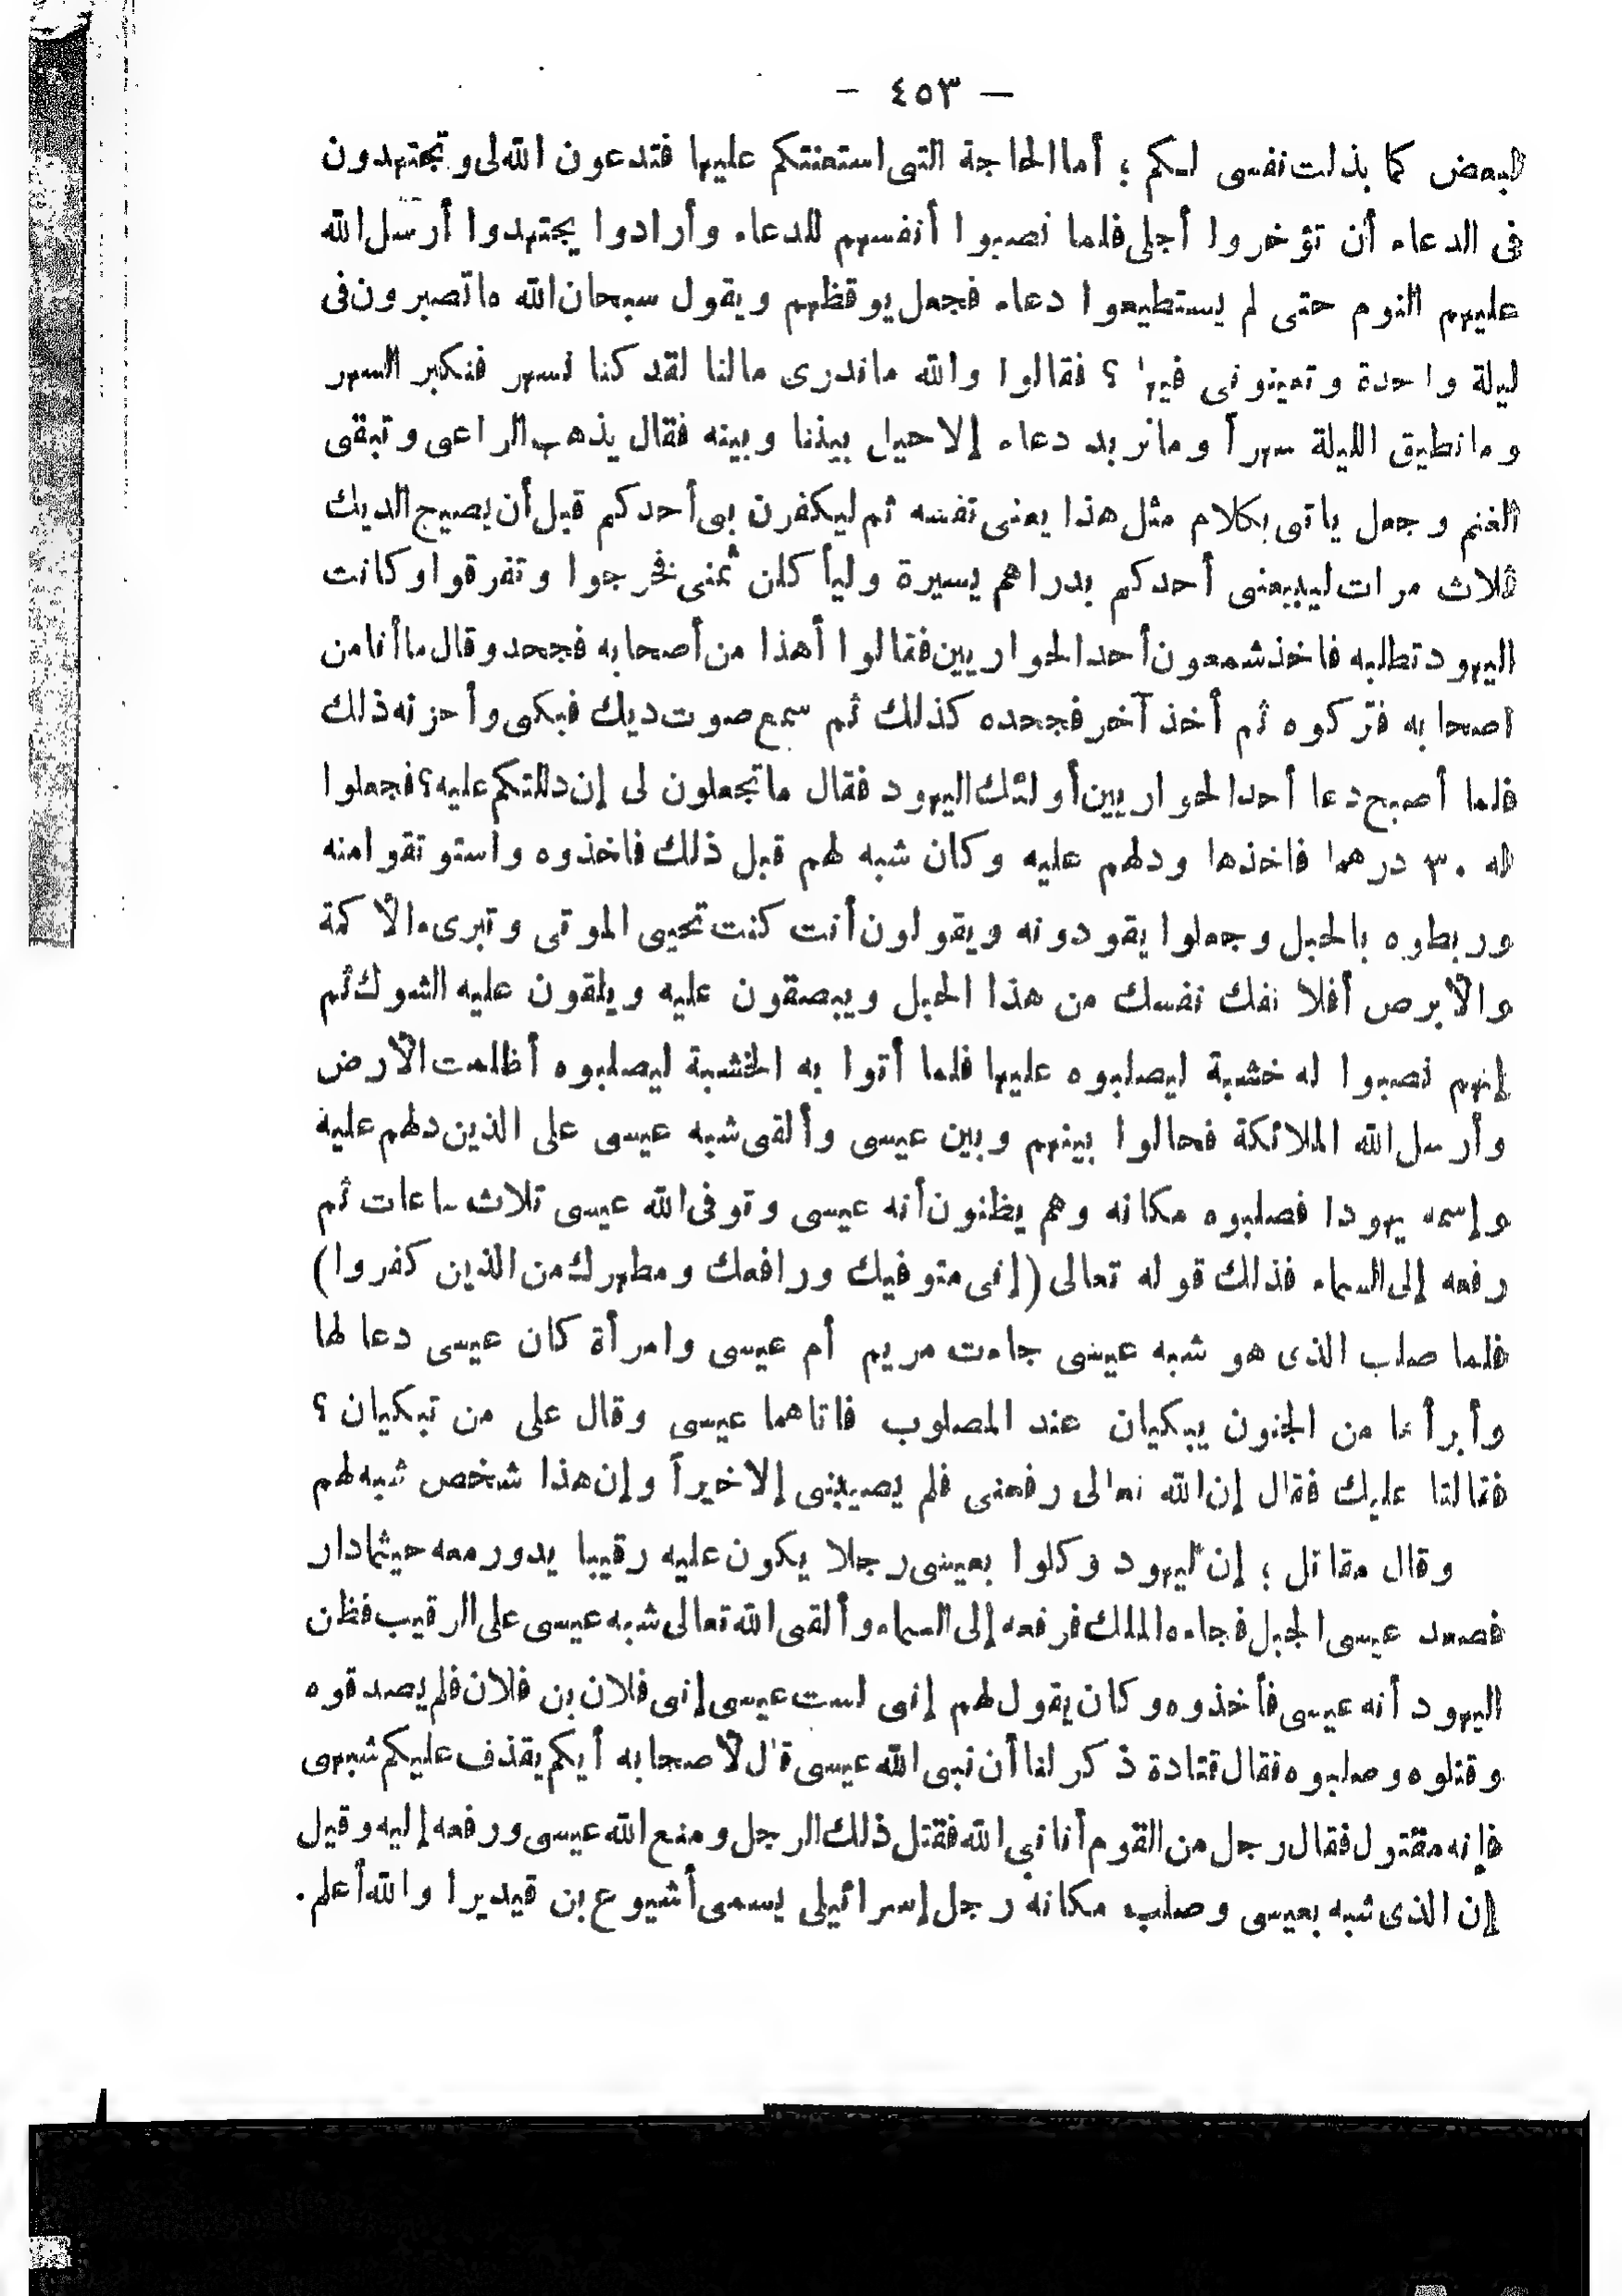 — ٤٥٣ —
البعض كما بذلت نفسى لكم ؛ أما الحاجة التى استعنتكم عليها فتدعون الله لى وتجتهدون
فى الدعاء أن تؤخروا أجلى فلما نصبوا أنفسهم للدعاء وأرادوا يجتهدوا أرسل الله
عليهم النوم حتى لم يستطيعوا دعاء فجعل يوقظهم ويقول سبحان الله ما تصبرون فى
ليلة واحدة وتعينونى فيها ؟ فقالوا والله ماندرى مالنا لقد كنا نسهر فنكبر السهر
ومانطيق الليلة سهراً ومانريد دعاء إلا حيل بيننا وبينه فقال يذهب الراعى وتبقى
الغنم وجعل ياتى بكلام مثل هذا يعنى نفسه ثم ليكفرن بى أحدكم قبل أن يصيح الديك
ثلاث مرات ليبيعنى أحدكم بدراهم يسيرة وليأكلن ثمنى فخرجوا وتفرقوا وكانت
اليهود تطلبه فاخذ شمعون أحد الحواريين فقالوا أهذا من أصحابه فجحد وقال ما أنا من
اصحابه فتركوه ثم أخذ آخر فجحده كذلك ثم سمع صوت ديك فبكى وأحزنه ذلك
فلما أصبح دعا أحد الحواريين أولئك اليهود فقال ما تجعلون لى إن دللتكم عليه ؟ فجعلوا
له ٣٠ درهما فاخذها ودلهم عليه وكان شبه لهم قبل ذلك فاخذوه واستوتقوا منه
وربطوه بالحبل وجعلوا يقودونه ويقولون أنت كنت تحيى الموتى وتبرىء الأكمة
والأبرص أفلا نفك نفسك من هذا الحبل ويبصقون عليه ويلقون عليه الشوك ثم
إنهم نصبوا له خشبة ليصلبوه عليها فلما أتوا به الخشبة ليصلبوه أظلمت الأرض
وأرسل الله الملائكة فحالوا بينهم وبين عيسى وألقى شبه عيسى على الذين دلهم علية
وإسمه يهودا فصلبوه مكانه وهم يظنون أنه عيسى وتوفى الله عيسى ثلاث ساعات ثم
رفعه إلى السماء فذلك قوله تعالى (إنى متوفيك ورافعك ومطهرك من الذين كفروا)
فلما صلب الذى هو شبه عيسى جاءت مريم أم عيسى وامرأة كان عيسى دعا لها
وأبرأها من الجنون يبكيان عند المصلوب فاتاهما عيسى وقال على من تبكيان ؟
فقالتا عليك فقال إن الله تعالى رفعنى فلم يصيبنى إلا خيراً وإن هذا شخص شبه لهم
وقال مقاتل ؛ إن اليهود وكلوا بعيسى رجلا يكون عليه رقيبا يدور معه حيثما دار
فصعد عيسى الجبل فجاءه الملك فرفعه إلى السماء وألقى الله تعالى شبه عيسى على الرقيب فظن
اليهود أنه عيسى فأخذوه وكان يقول لهم إنى لست عيسى إنى فلان بن فلان فلم يصدقوه
وقتلوه وصلبوه فقال قتادة ذكر لنا أن نبى الله عيسى قال لأصحابه أيكم يقذف عليكم شبهى
فإنه مقتول فقال رجل من القوم أنا نبى الله فقتل ذلك الرجل ومنع الله عيسى ورفعه إليه وقيل
إن الذى شبه بعيسى وصلب مكانه رجل إسرائيلى يسمى أشيوع بن قيديرا والله أعلم.